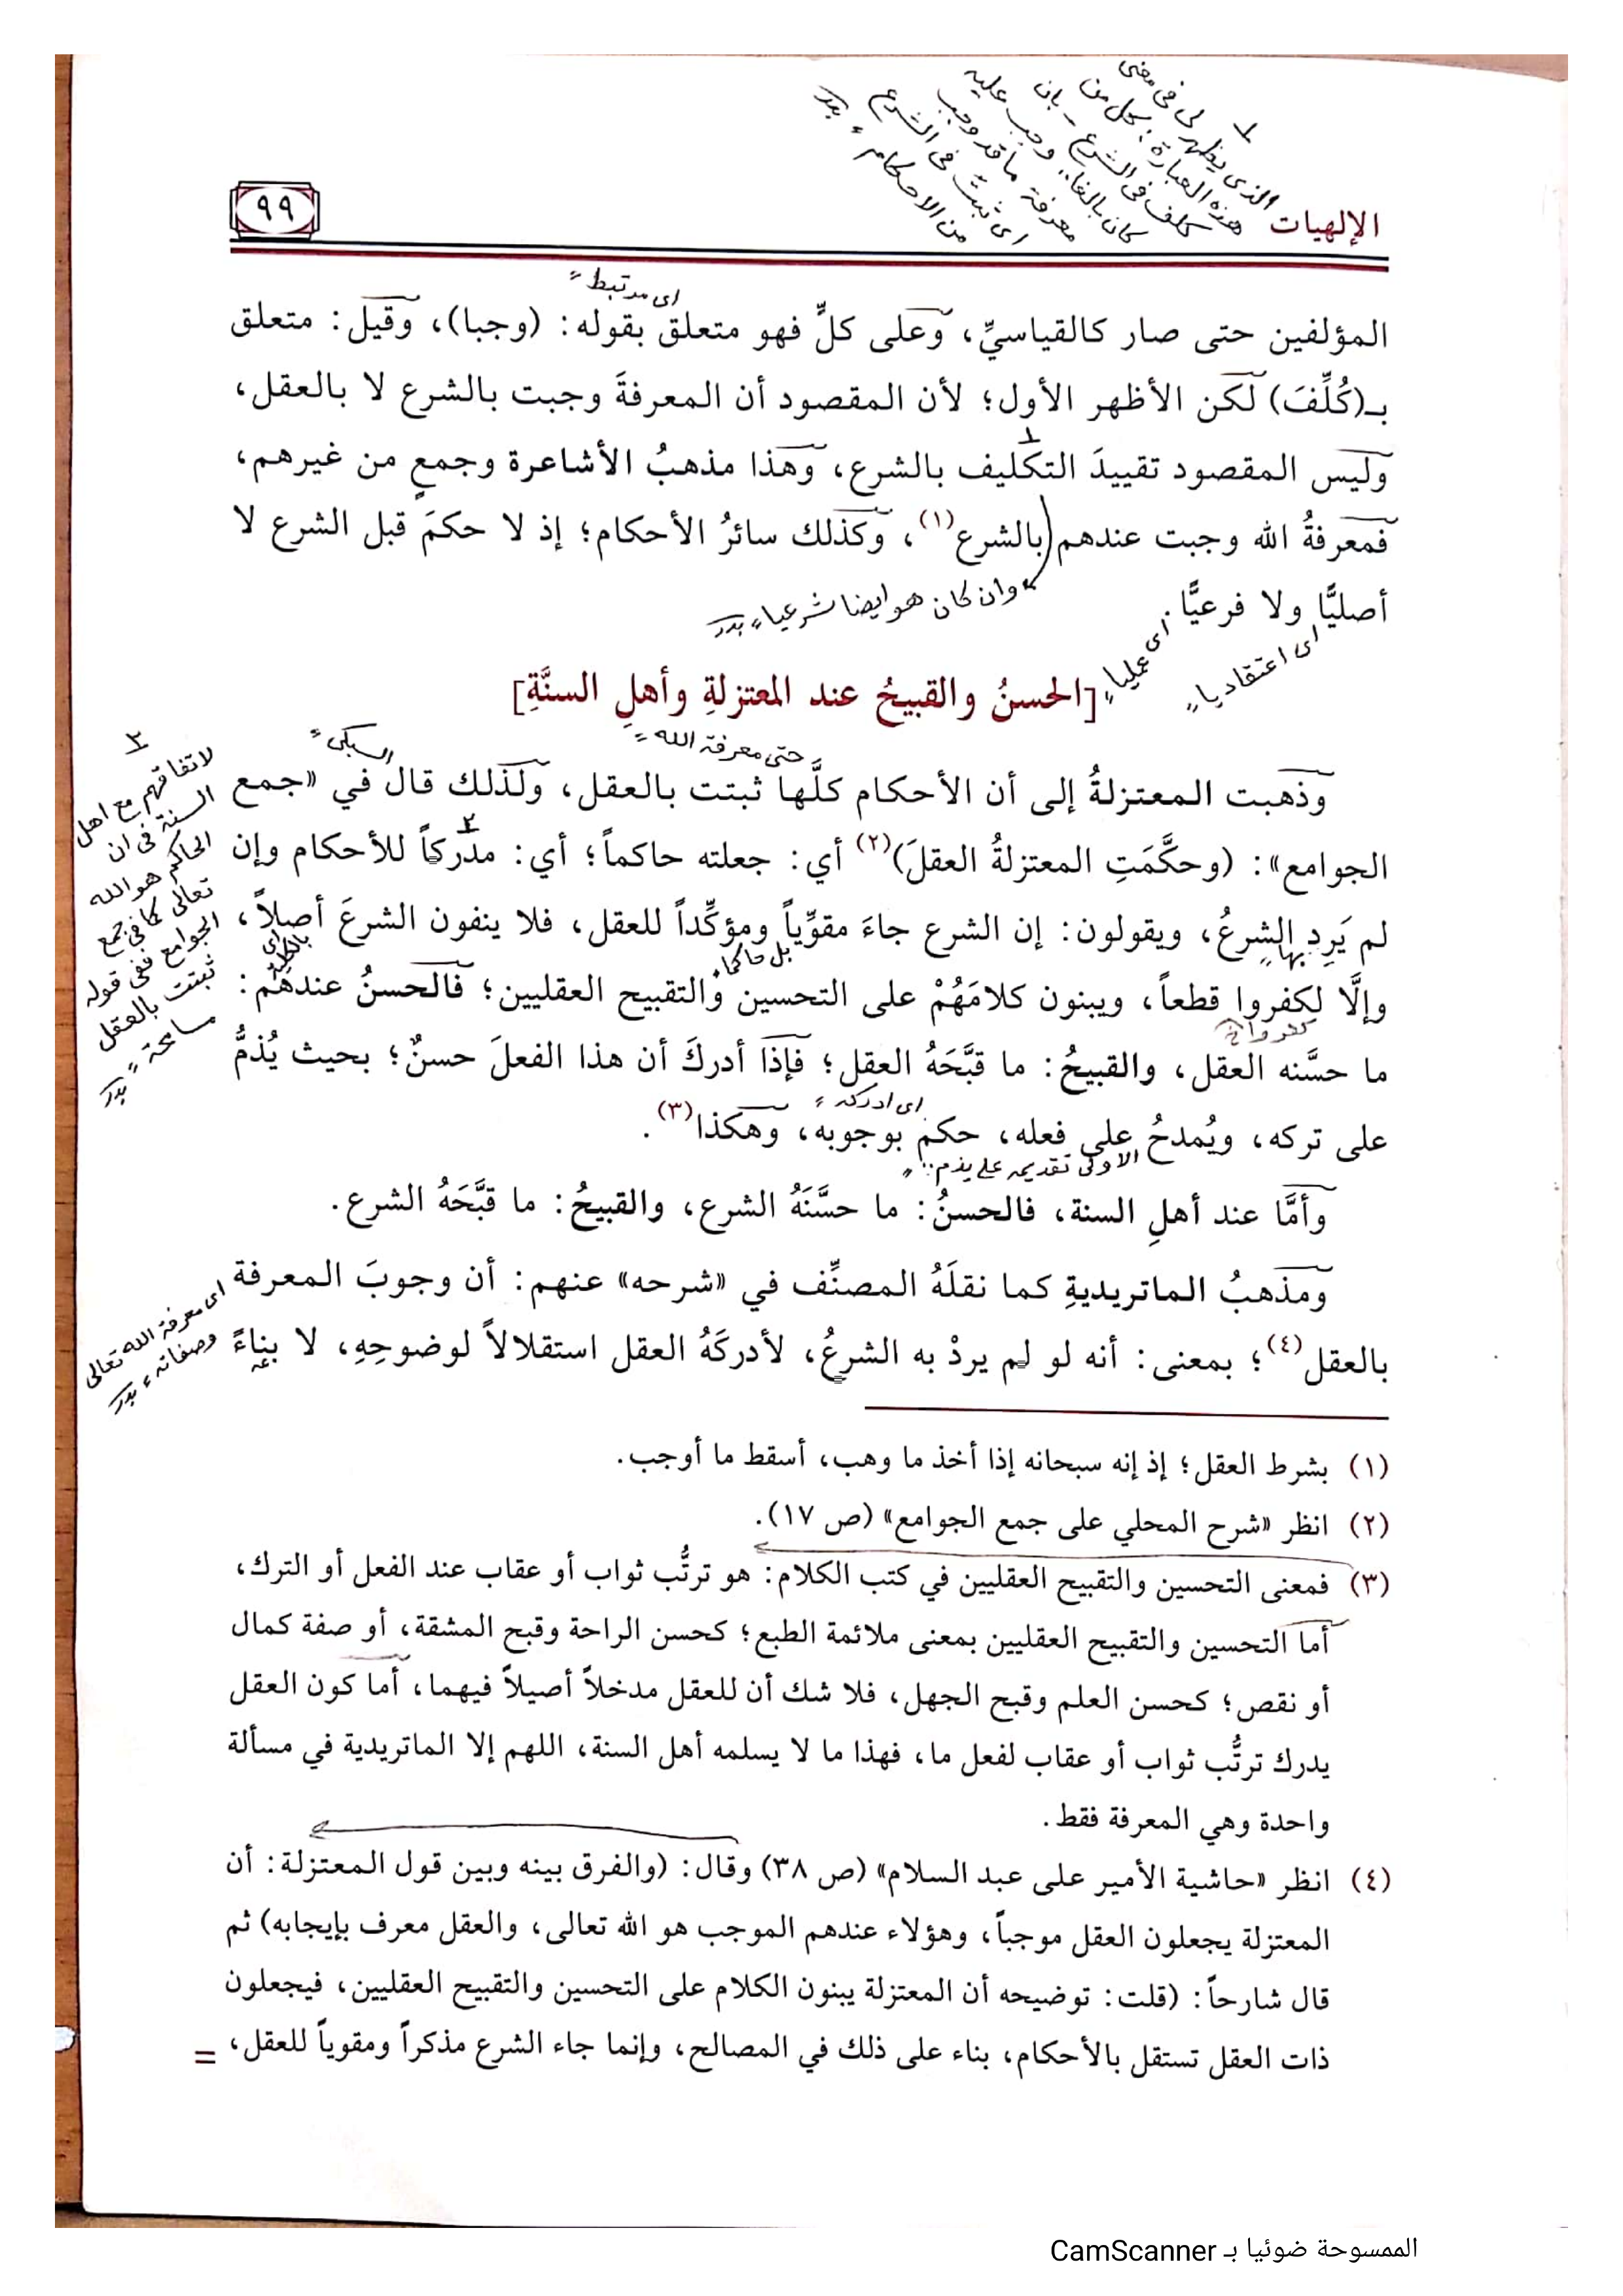 ١
الذى يظهر لى فى معنى
هذه العبارة: بكل من
كلف فى الشرع - بان
كان بالغا.. وجب عليه
معرفة ما قد وجب
اى ثبت فى الشرع
من الاحكام، بدر
الإلهيات
٩٩
اى مرتبط
المؤلفين حتى صار كالقياسيِّ، وعلى كلٍّ فهو متعلق بقوله: (وجبا)، وقيل: متعلق
بـ(كُلِّفَ) لكن الأظهر الأول؛ لأن المقصود أن المعرفةَ وجبت بالشرع لا بالعقل،
١
وليس المقصود تقييدَ التكليف بالشرع، وهذا مذهبُ الأشاعرة وجمعٍ من غيرهم،
فمعرفةُ الله وجبت عندهم بالشرع(١)، وكذلك سائرُ الأحكام؛ إذ لا حكمَ قبل الشرع لا
وان كان هو ايضا شرعيا، بدر
أصليًّا ولا فرعيًّا.
اى عمليا
اى اعتقاديا
[الحسنُ والقبيحُ عند المعتزلةِ وأهلِ السنَّةِ]
حتى معرفة الله
السبكى
وذهبت المعتزلةُ إلى أن الأحكام كلَّها ثبتت بالعقل، ولذلك قال في «جمع
٢
الجوامع»: (وحكَّمَتِ المعتزلةُ العقلَ)(٢) أي: جعلته حاكماً؛ أي: مدركاً للأحكام وإن
لم يَرِد بها الشرعُ، ويقولون: إن الشرع جاءَ مقوِّياً ومؤكِّداً للعقل، فلا ينفون الشرعَ أصلاً،
بل حاكما
اى بالكلية
وإلَّا لكفروا قطعاً، ويبنون كلامَهُمْ على التحسين والتقبيح العقليين؛ فالحسنُ عندهم:
ما حسَّنه العقل، والقبيحُ: ما قبَّحَهُ العقل؛ فإذا أدركَ أن هذا الفعلَ حسنٌ؛ بحيث يُذمُّ
اى ادركه
على تركه، ويُمدحُ على فعله، حكم بوجوبه، وهكذا(٣).
الاولى تقديمه على يذم..
٢
لاتفاقهم مع اهل
السنة فى ان
الحاكم هو الله
تعالى كما فى جمع
الجوامع ففى قوله
ثبتت بالعقل
مسامحة، بدر
وأمَّا عند أهلِ السنة، فالحسنُ: ما حسَّنَهُ الشرع، والقبيحُ: ما قبَّحَهُ الشرع.
ومذهبُ الماتريديةِ كما نقلَهُ المصنِّف في «شرحه» عنهم: أن وجوبَ المعرفة
بالعقل(٤)؛ بمعنى: أنه لو لم يردْ به الشرعُ، لأدركَهُ العقل استقلالاً لوضوحِهِ، لا بناءً
اى معرفة الله تعالى
وصفاته، بدر
(١) بشرط العقل؛ إذ إنه سبحانه إذا أخذ ما وهب، أسقط ما أوجب.
(٢) انظر «شرح المحلي على جمع الجوامع» (ص ١٧).
(٣) فمعنى التحسين والتقبيح العقليين في كتب الكلام: هو ترتُّب ثواب أو عقاب عند الفعل أو الترك،
أما التحسين والتقبيح العقليين بمعنى ملائمة الطبع؛ كحسن الراحة وقبح المشقة، أو صفة كمال
أو نقص؛ كحسن العلم وقبح الجهل، فلا شك أن للعقل مدخلاً أصيلاً فيهما، أما كون العقل
يدرك ترتُّب ثواب أو عقاب لفعل ما، فهذا ما لا يسلمه أهل السنة، اللهم إلا الماتريدية في مسألة
واحدة وهي المعرفة فقط.
(٤) انظر «حاشية الأمير على عبد السلام» (ص ٣٨) وقال: (والفرق بينه وبين قول المعتزلة: أن
المعتزلة يجعلون العقل موجباً، وهؤلاء عندهم الموجب هو الله تعالى، والعقل معرف بإيجابه) ثم
قال شارحاً: (قلت: توضيحه أن المعتزلة يبنون الكلام على التحسين والتقبيح العقليين، فيجعلون
ذات العقل تستقل بالأحكام، بناء على ذلك في المصالح، وإنما جاء الشرع مذكراً ومقوياً للعقل، =
الممسوحة ضوئيا بـ CamScanner